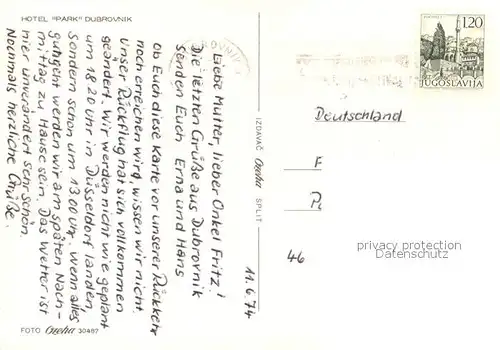 HOTEL "PARK" DUBROVNIK
Liebe Mutter, lieber Onkel Fritz!
Die letzten Grüße aus Dubrovnik
senden Euch Erna und Hans
Ob Euch diese Karte vor unserer Rückkehr
noch erreichen wird, wissen wir nicht.
Unser Rückflug hat sich vollkommen
geändert. Wir werden nicht wie geplant
um 18 20 Uhr in Düsseldorf landen,
sondern schon um 13 00 Uhr. Wenn alles
gutgeht werden wir am späten Nach-
mittag zu Hause sein. Das Wetter ist
hier unverändert sehr schön.
Nochmals herzliche Grüße.
FOTO Ozeha 30467
IZDAVAČ Ozeha SPLIT
1.20
JUGOSLAVIJA
Deutschland
F
P
46
11.6.74
privacy protection
Datenschutz